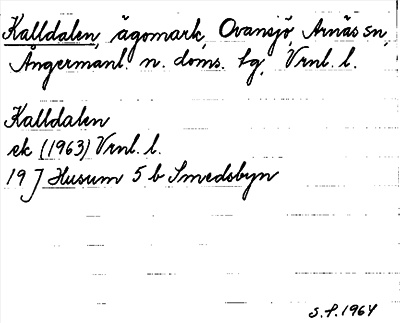 Kalldalen, ägomark, Ovansjö, Arnäs sn,
Ångermanl. n. doms. tg, Vrnl. l.
Kalldalen
ek (1963) Vrnl. l.
19 J Husum 5 b Smedsbyn
S.F. 1964